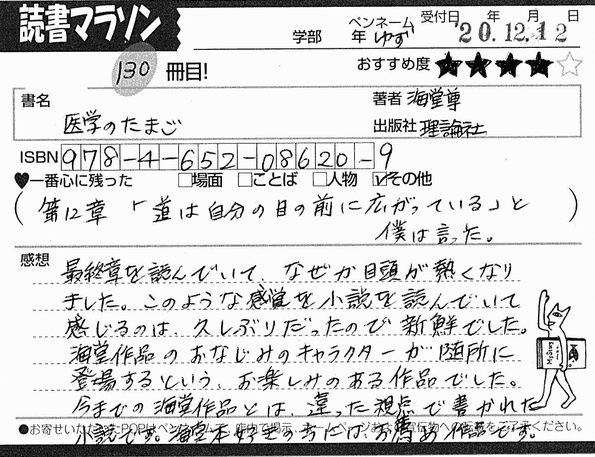 読書マラソン
学部 年 ペンネーム ゆず 受付日 年 月 日 20.12.12
130 冊目! おすすめ度 ★★★★☆
書名 著者 海堂尊
医学のたまご 出版社 理論社
ISBN 978-4-652-08620-9
♥一番心に残った □場面 □ことば □人物 ☑その他
(第12章 「道は自分の目の前に広がっている」と
僕は言った。)
感想
最終章を読んでいて、なぜか目頭が熱くなり
ました。このような感覚を小説を読んでいて
感じるのは、久しぶりだったので新鮮でした。
海堂作品のおなじみのキャラクターが随所に
登場するという、お楽しみのある作品でした。
今までの海堂作品とは、違った視点で書かれた
●お寄せいただいたPOPはペンネームで、店内で掲示、ホームページおよび宣伝物への転載をご了承ください。
小説です。海堂本好きの方には、お薦め作品です。